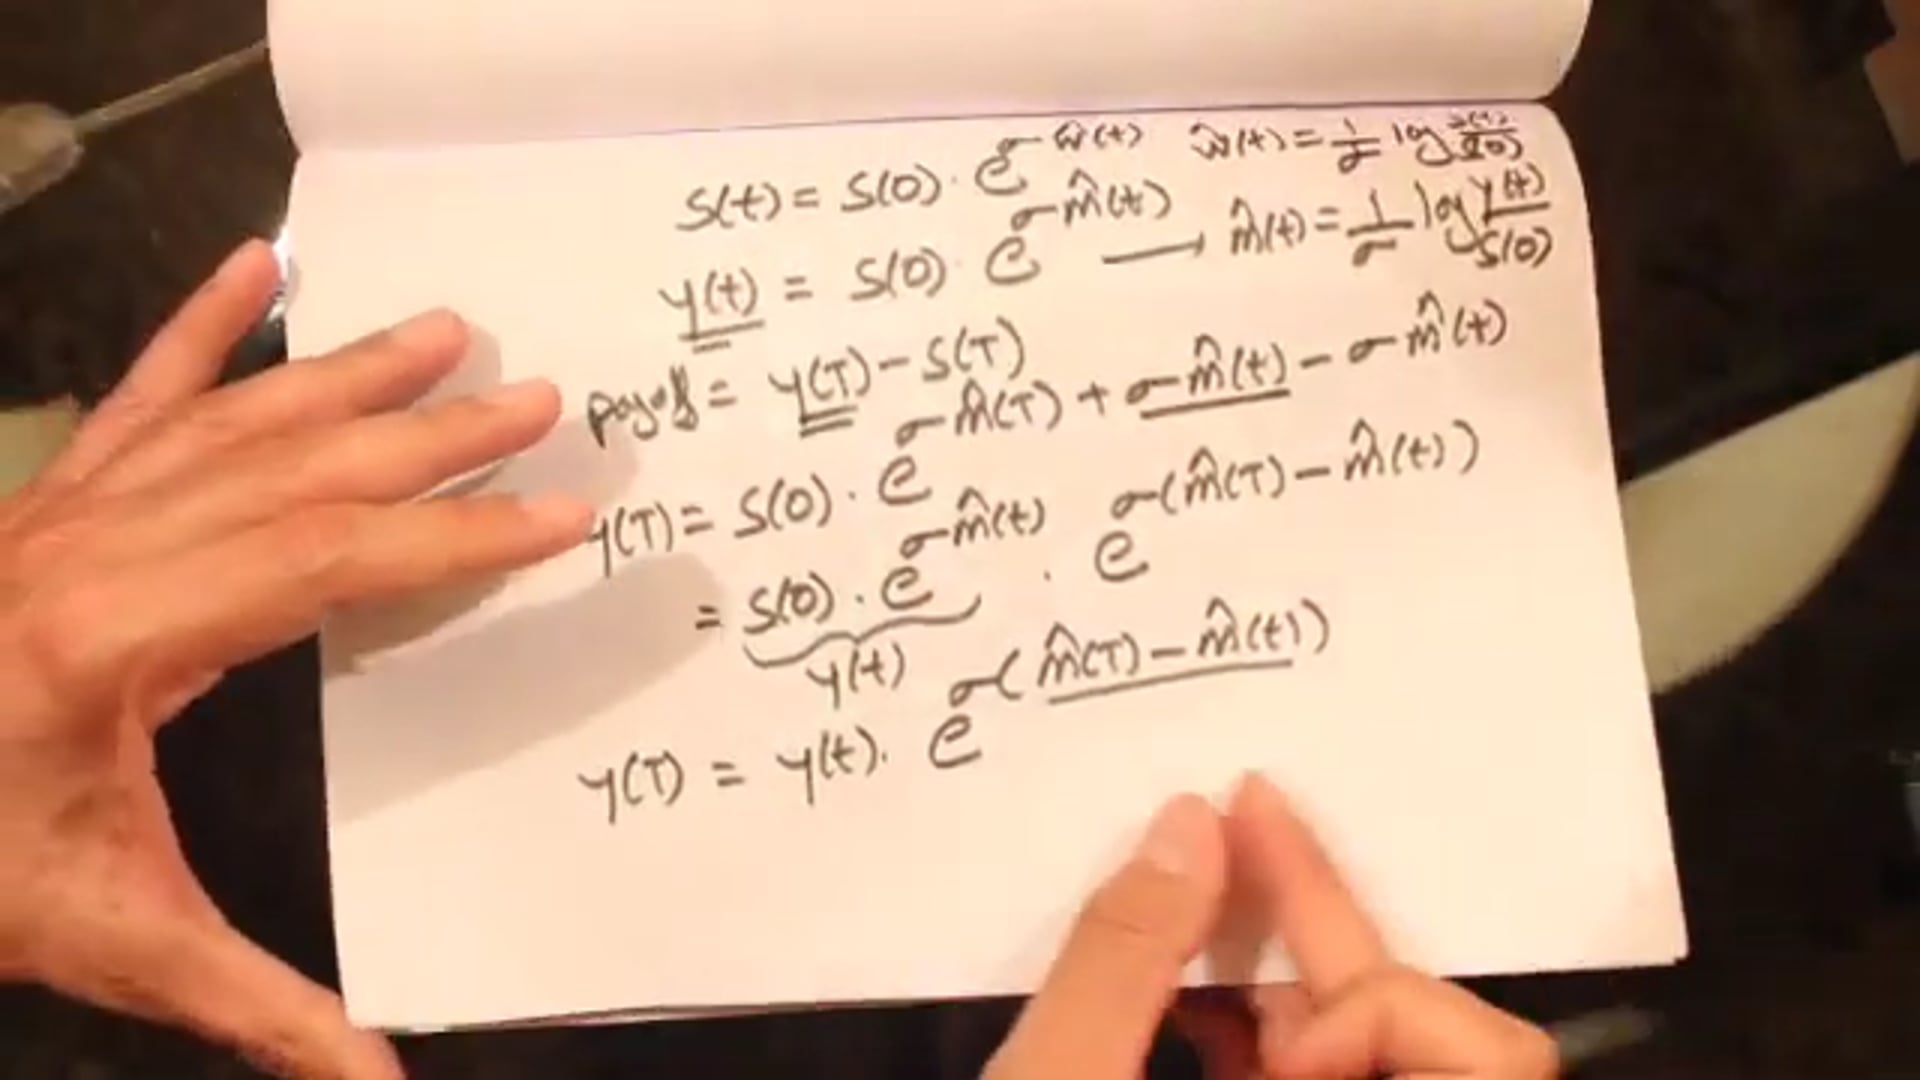 S(t) = S(0) · e^{σŵ(t)} ŵ(t) = 1/σ log S(t)/S(0)
y(t) = S(0) · e^{σm̂(t)} → m̂(t) = 1/σ log y(t)/S(0)
payoff = y(T) - S(T)
y(T) = S(0) · e^{σm̂(T) + σm̂(t) - σm̂(t)}
= S(0) · e^{σm̂(t)} · e^{σ(m̂(T) - m̂(t))}
y(t)
y(T) = y(t) · e^{σ(m̂(T) - m̂(t))}